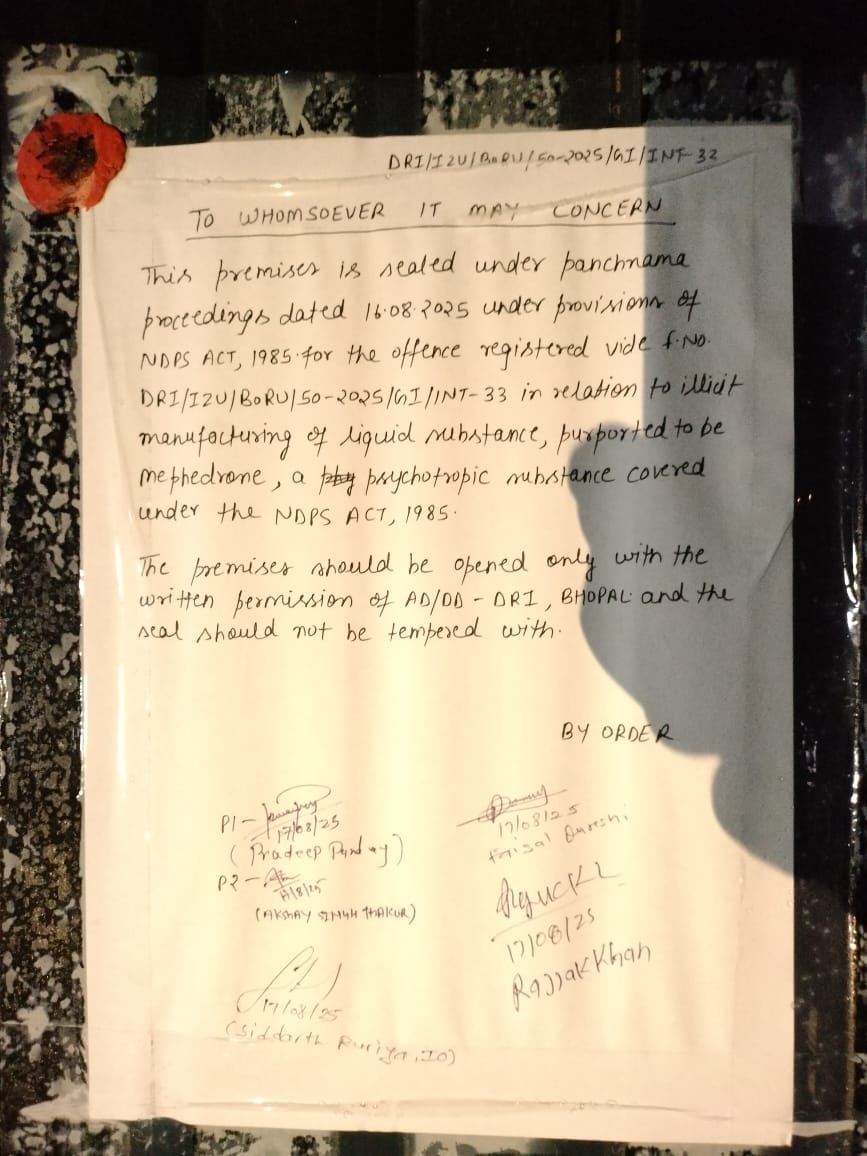 DRI/IZU/BoRU/50-2025/GI/INT-33
TO WHOMSOEVER IT MAY CONCERN
This premises is sealed under panchnama
proceedings dated 16.08.2025 under provisions of
NDPS ACT, 1985 for the offence registered vide f.No.
DRI/IZU/BoRU/50-2025/GI/INT-33 in relation to illicit
manufacturing of liquid substance, purported to be
mephedrone, a psychotropic substance covered
under the NDPS ACT, 1985.
The premises should be opened only with the
written permission of AD/DD - DRI, BHOPAL and the
seal should not be tempered with.
BY ORDER
P1-
17/08/25
(Pradeep Panday)
P2-
(AKSHAY SINGH THAKUR)
17/08/25
(Siddarth Ruriya, IO)
17/08/25
Faisal Qureshi
17/08/25
Razzak Khan